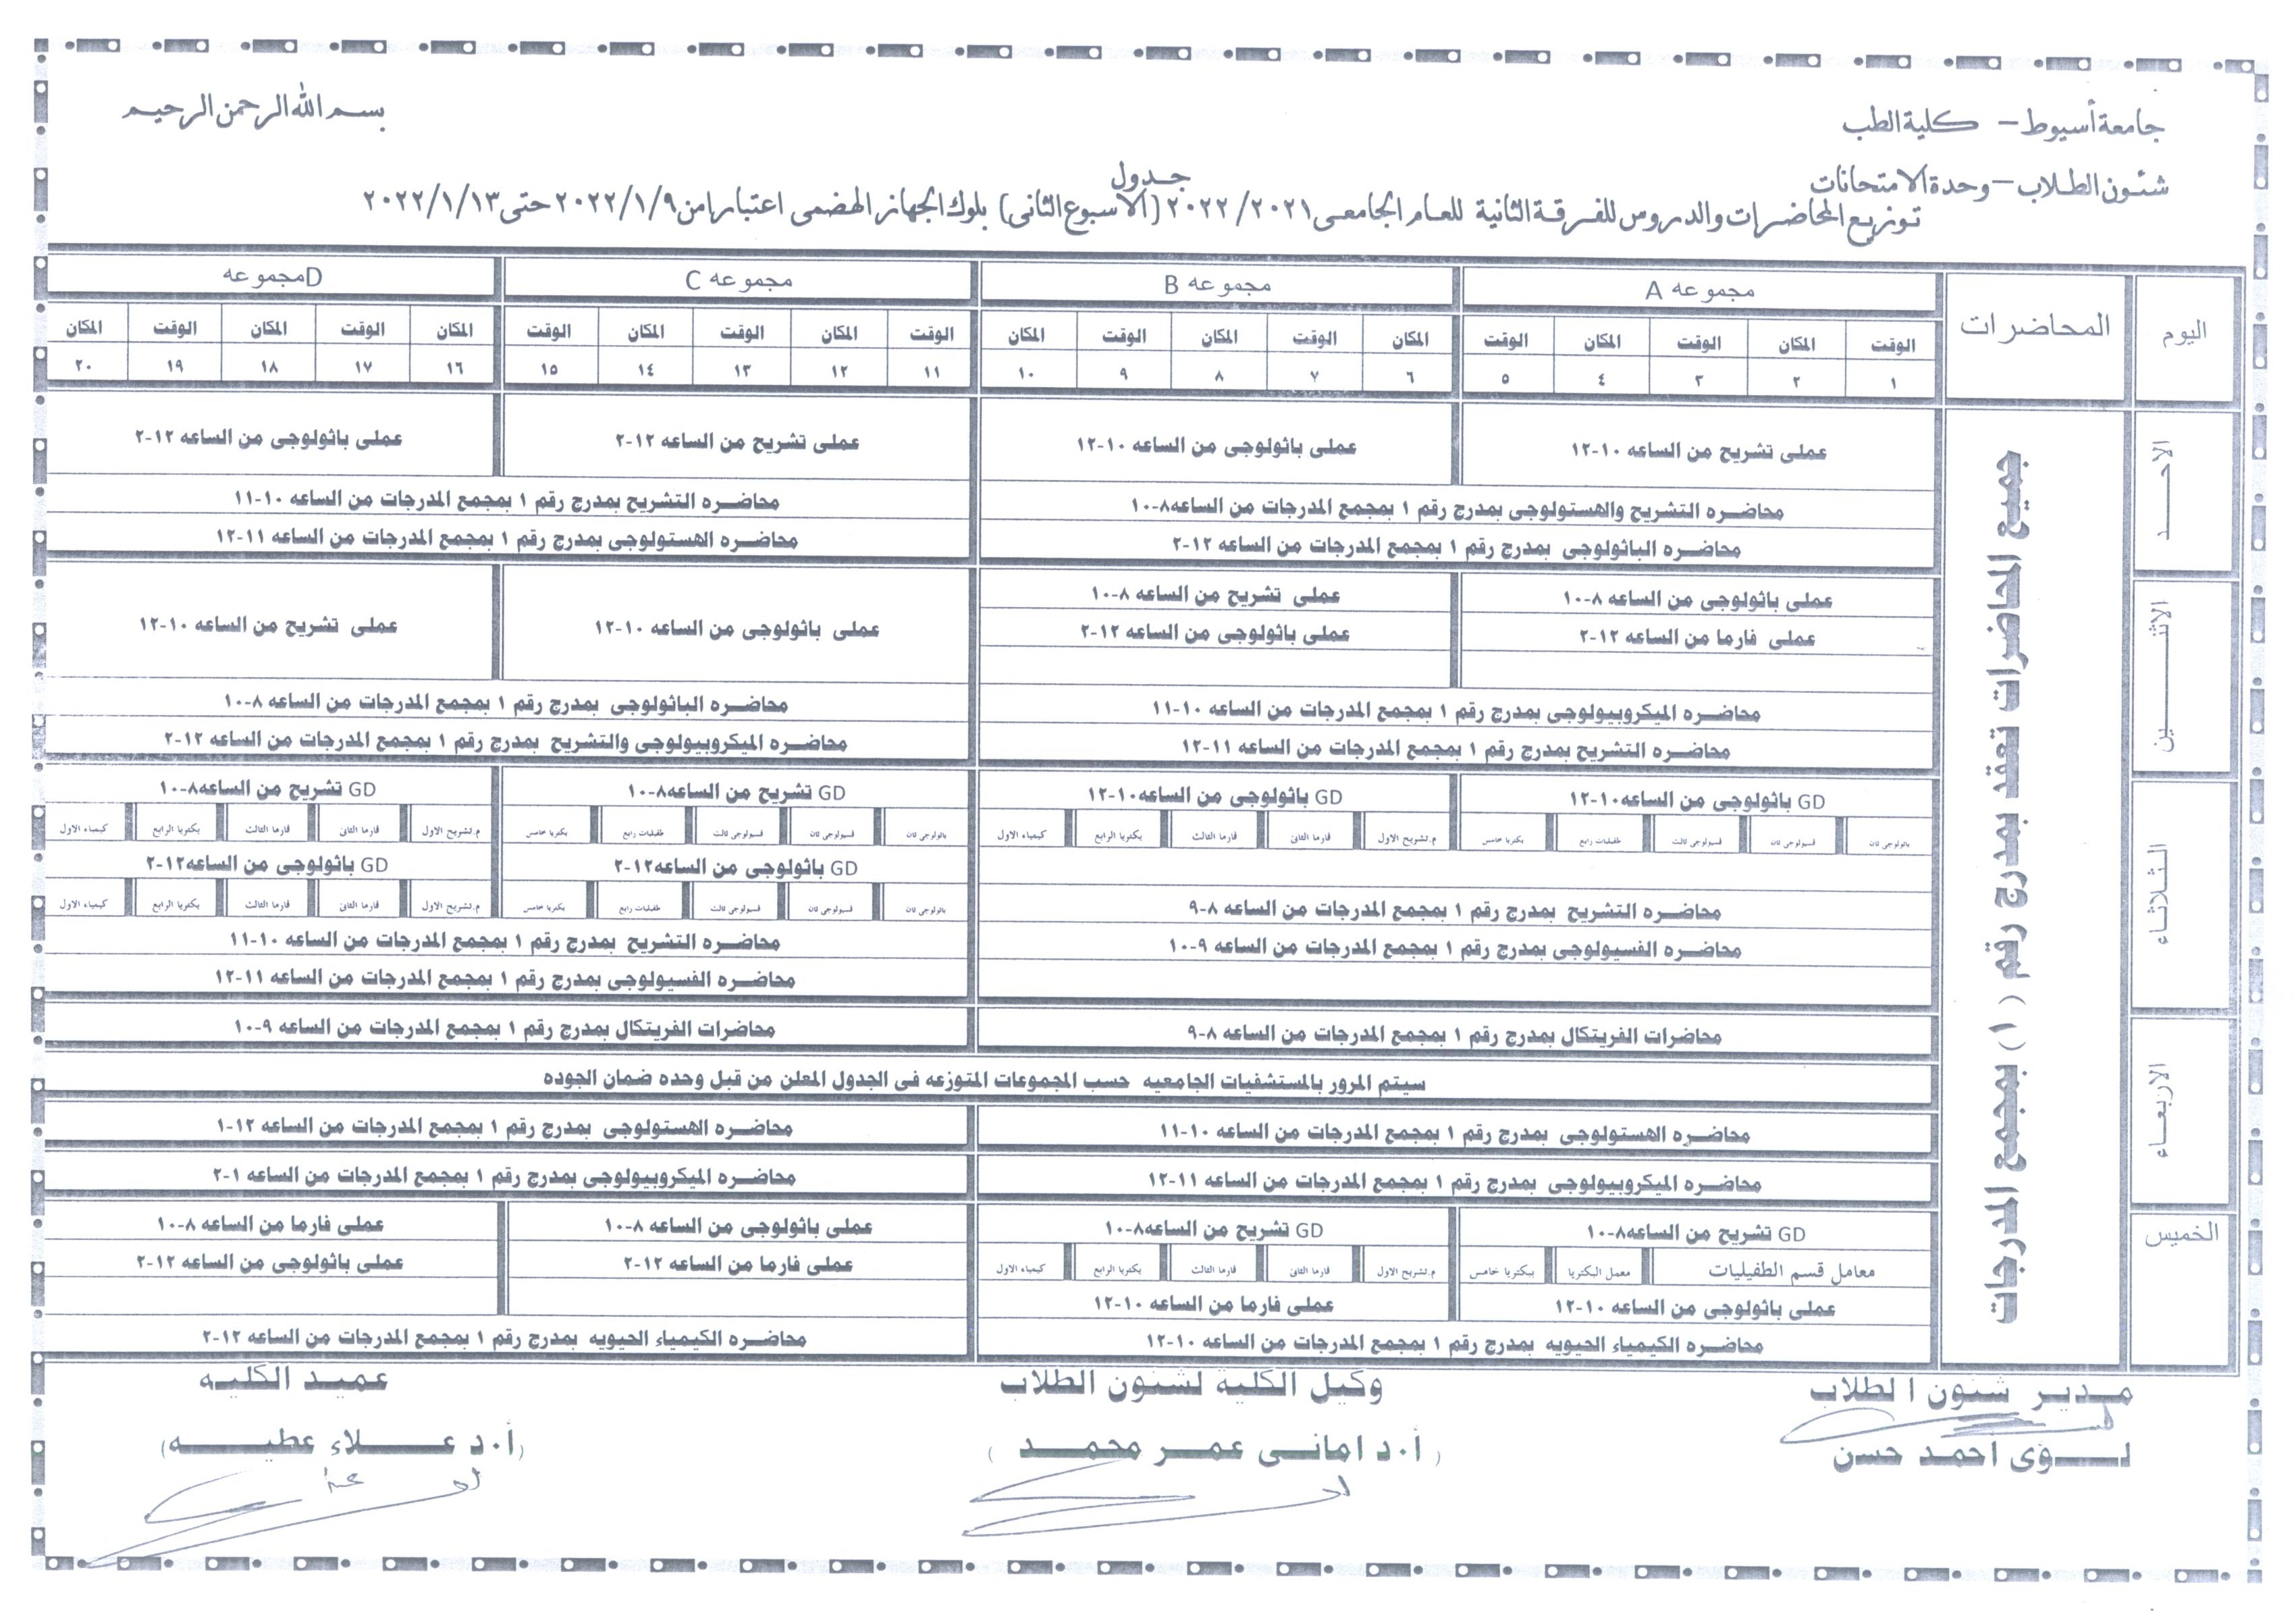 جامعة أسيوط – كلية الطب
بسم الله الرحمن الرحيم
شئون الطلاب – وحدة الامتحانات
جدول
توزيع المحاضرات والدروس للفرقة الثانية للعام الجامعى ٢٠٢١/ ٢٠٢٢ (الاسبوع الثانى) بلوك الجهاز الهضمى اعتبارا من ٢٠٢٢/١/٩ حتى ٢٠٢٢/١/١٣
اليوم المحاضرات مجموعه A مجموعه B مجموعه C مجموعه D
الوقت المكان الوقت المكان الوقت المكان الوقت المكان الوقت المكان الوقت المكان الوقت المكان الوقت المكان الوقت المكان الوقت المكان
١ ٢ ٣ ٤ ٥ ٦ ٧ ٨ ٩ ١٠ ١١ ١٢ ١٣ ١٤ ١٥ ١٦ ١٧ ١٨ ١٩ ٢٠
جميع المحاضرات تعقد بمدرج رقم (١) بمجمع المدرجات
الاحد
عملى تشريح من الساعه ١٠-١٢ عملى باثولوجى من الساعه ١٠-١٢ عملى تشريح من الساعه ١٢-٢ عملى باثولوجى من الساعه ١٢-٢
محاضره التشريح والهستولوجى بمدرج رقم ١ بمجمع المدرجات من الساعه٨-١٠ محاضره التشريح بمدرج رقم ١ بمجمع المدرجات من الساعه ١٠-١١
محاضره الباثولوجى بمدرج رقم ١ بمجمع المدرجات من الساعه ١٢-٢ محاضره الهستولوجى بمدرج رقم ١ بمجمع المدرجات من الساعه ١١-١٢
الاثنين
عملى باثولوجى من الساعه ٨-١٠ عملى تشريح من الساعه ٨-١٠ عملى باثولوجى من الساعه ١٠-١٢ عملى تشريح من الساعه ١٠-١٢
عملى فارما من الساعه ١٢-٢ عملى باثولوجى من الساعه ١٢-٢
محاضره الميكروبيولوجى بمدرج رقم ١ بمجمع المدرجات من الساعه ١٠-١١ محاضره الباثولوجى بمدرج رقم ١ بمجمع المدرجات من الساعه ٨-١٠
محاضره التشريح بمدرج رقم ١ بمجمع المدرجات من الساعه ١١-١٢ محاضره الميكروبيولوجى والتشريح بمدرج رقم ١ بمجمع المدرجات من الساعه ١٢-٢
الثلاثاء
GD باثولوجى من الساعه١٠-١٢ GD باثولوجى من الساعه١٠-١٢ GD تشريح من الساعه٨-١٠ GD تشريح من الساعه٨-١٠
باثولوجى ثان فسيولوجى ثان فسيولوجى ثالث طفيليات رابع بكتريا خامس م.تشريح الاول فارما الثانى فارما الثالث بكتريا الرابع كيمياء الاول باثولوجى ثان فسيولوجى ثان فسيولوجى ثالث طفيليات رابع بكتريا خامس م.تشريح الاول فارما الثانى فارما الثالث بكتريا الرابع كيمياء الاول
GD باثولوجى من الساعه١٢-٢ GD باثولوجى من الساعه١٢-٢
باثولوجى ثان فسيولوجى ثان فسيولوجى ثالث طفيليات رابع بكتريا خامس م.تشريح الاول فارما الثانى فارما الثالث بكتريا الرابع كيمياء الاول
محاضره التشريح بمدرج رقم ١ بمجمع المدرجات من الساعه ٨-٩ محاضره التشريح بمدرج رقم ١ بمجمع المدرجات من الساعه ١٠-١١
محاضره الفسيولوجى بمدرج رقم ١ بمجمع المدرجات من الساعه ٩-١٠ محاضره الفسيولوجى بمدرج رقم ١ بمجمع المدرجات من الساعه ١١-١٢
الاربعاء
محاضرات الفريتكال بمدرج رقم ١ بمجمع المدرجات من الساعه ٨-٩ محاضرات الفريتكال بمدرج رقم ١ بمجمع المدرجات من الساعه ٩-١٠
سيتم المرور بالمستشفيات الجامعيه حسب المجموعات المتوزعه فى الجدول المعلن من قبل وحده ضمان الجوده
محاضره الهستولوجى بمدرج رقم ١ بمجمع المدرجات من الساعه ١٠-١١ محاضره الهستولوجى بمدرج رقم ١ بمجمع المدرجات من الساعه ١٢-١
محاضره الميكروبيولوجى بمدرج رقم ١ بمجمع المدرجات من الساعه ١١-١٢ محاضره الميكروبيولوجى بمدرج رقم ١ بمجمع المدرجات من الساعه ١-٢
الخميس
GD تشريح من الساعه٨-١٠ GD تشريح من الساعه٨-١٠ عملى باثولوجى من الساعه ٨-١٠ عملى فارما من الساعه ٨-١٠
معامل قسم الطفيليات معمل البكتريا ببكتريا خامس م.تشريح الاول فارما الثانى فارما الثالث بكتريا الرابع كيمياء الاول عملى فارما من الساعه ١٢-٢ عملى باثولوجى من الساعه ١٢-٢
عملى باثولوجى من الساعه ١٠-١٢ عملى فارما من الساعه ١٠-١٢
محاضره الكيمياء الحيويه بمدرج رقم ١ بمجمع المدرجات من الساعه ١٠-١٢ محاضره الكيمياء الحيويه بمدرج رقم ١ بمجمع المدرجات من الساعه ١٢-٢
مدير شئون الطلاب وكيل الكلية لشئون الطلاب عميد الكليه
لؤى أحمد حسن (أ.د امانى عمر محمد) (أ.د علاء عطيه)